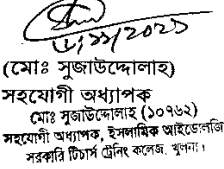 (মোঃ সুজাউদ্দোলাহ)
সহযোগী অধ্যাপক
মোঃ সুজাউদ্দোলাহ (১০৭৬২)
সহযোগী অধ্যাপক, ইসলামিক আইডোলজি
সরকারি টিচার্স ট্রেনিং কলেজ, খুলনা।